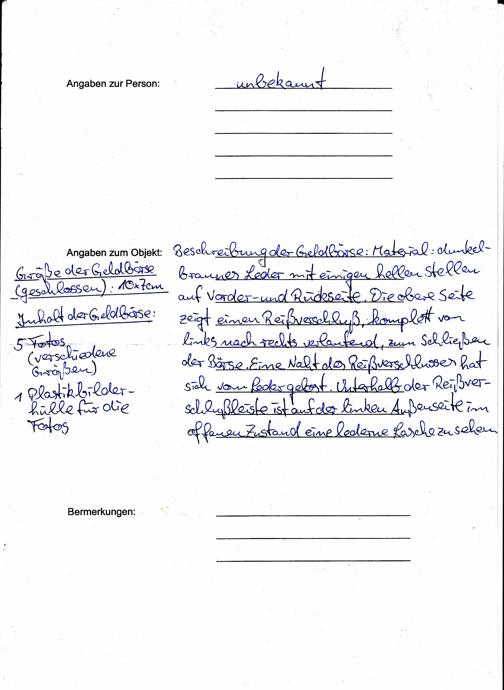 Angaben zur Person: unbekannt
Angaben zum Objekt:
Größe der Geldbörse
(geschlossen): 10x7cm
Inhalt der Geldbörse:
5 Fotos
(verschiedene
Größen)
1 Plastikbilder-
hülle für die
Fotos
Beschreibung der Geldbörse: Material: dunkel-
braunes Leder mit einigen hellen Stellen
auf Vorder- und Rückseite. Die obere Seite
zeigt einen Reißverschluß, komplett von
links nach rechts verlaufend, zum Schließen
der Börse. Eine Naht des Reißverschlusses hat
sich vom Leder gelöst. Unterhalb der Reißver-
schlußleiste ist auf der linken Außenseite im
offenen Zustand eine lederne Lasche zu sehen
Bermerkungen: